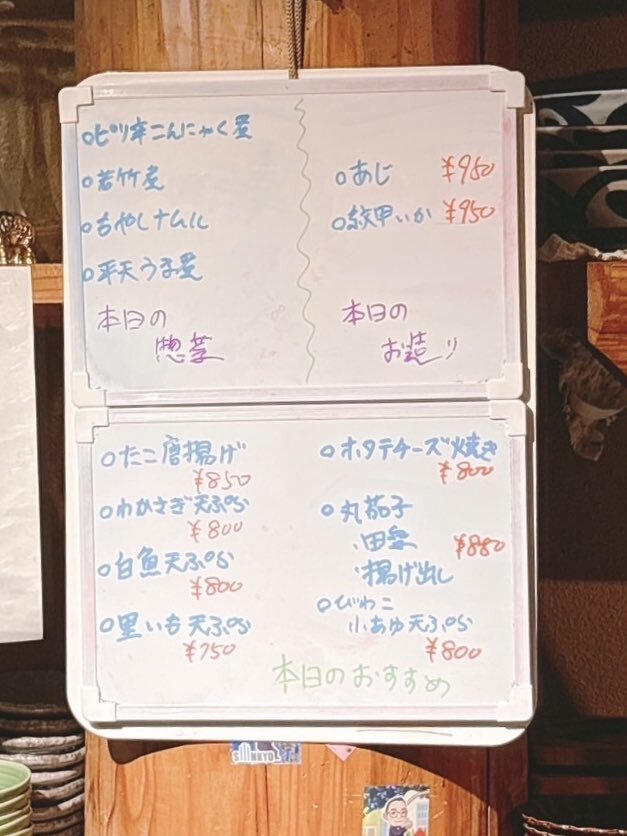 ○ピリ辛こんにゃく煮
○若竹煮
○もやしナムル
○平天うま煮
本日の
惣菜
○あじ ¥950
○紋甲いか ¥950
本日の
お造り
○たこ唐揚げ
¥850
○わかさぎ天ぷら
¥800
○白魚天ぷら
¥800
○里いも天ぷら
¥750
○ホタテチーズ焼き
¥800
○丸茄子
・田楽
¥880
・揚げ出し
○びわこ
小あゆ天ぷら
¥800
本日のおすすめ